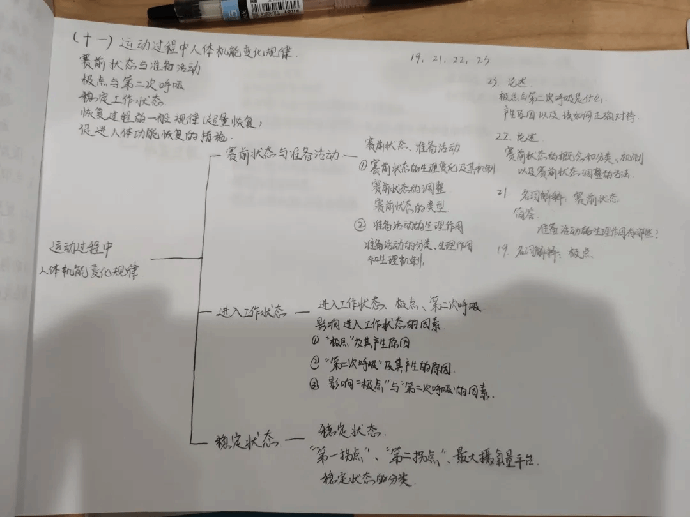 (十一) 运动过程中人体机能变化规律.
赛前状态与准备活动
极点与第二次呼吸
稳定工作状态
恢复过程的一般规律(超量恢复)
促进人体功能恢复的措施.
19、21、22、23
23 论述
极点与第二次呼吸是什么,
产生原因以及该如何正确对待.
22. 论述
赛前状态的概念和分类、机制
以及赛前状态调整的方法.
21. 名词解释: 赛前状态
简答:
准备活动的生理作用有哪些?
19. 名词解释: 极点
运动过程中
人体机能变化规律
赛前状态与准备活动
赛前状态、准备活动
① 赛前状态的生理变化及其机制
赛前状态的调整
赛前状态的类型
② 准备活动的生理作用
准备活动的分类、生理作用
和生理机制.
进入工作状态
进入工作状态、极点、第二次呼吸
影响进入工作状态的因素
① "极点"及其产生原因
② "第二次呼吸"及其产生的原因.
③ 影响"极点"与"第二次呼吸"的因素.
稳定状态
稳定状态.
"第一拐点"、"第二拐点"、最大摄氧量平台.
稳定状态的分类